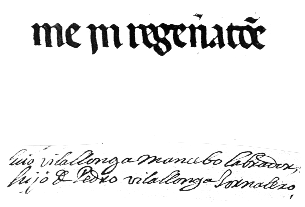 me in regen̄atōe
luis vilallonga mancebo Labrador,
hijo de Pedro vilallonga Jornalero